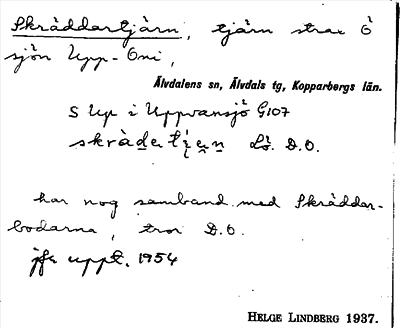 Skräddartjärn, tjärn strax Ö
sjön Upp-Oni,
Älvdalens sn, Älvdals tg, Kopparbergs län.
S Up i Uppvansjö G107
skràde t
Lö. D.O.
har nog samband med Skräddar-
bodarna, tror D.O.
jfr uppt. 1954
HELGE LINDBERG 1937.